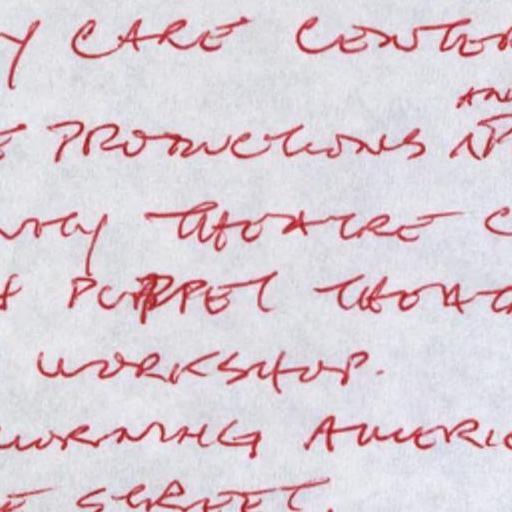 Y CARE CENTER
E PRODUCTIONS
THEATRE C
PUPPET THEAT
WORKSHOP.
MORNING AMERIC
E STREET.